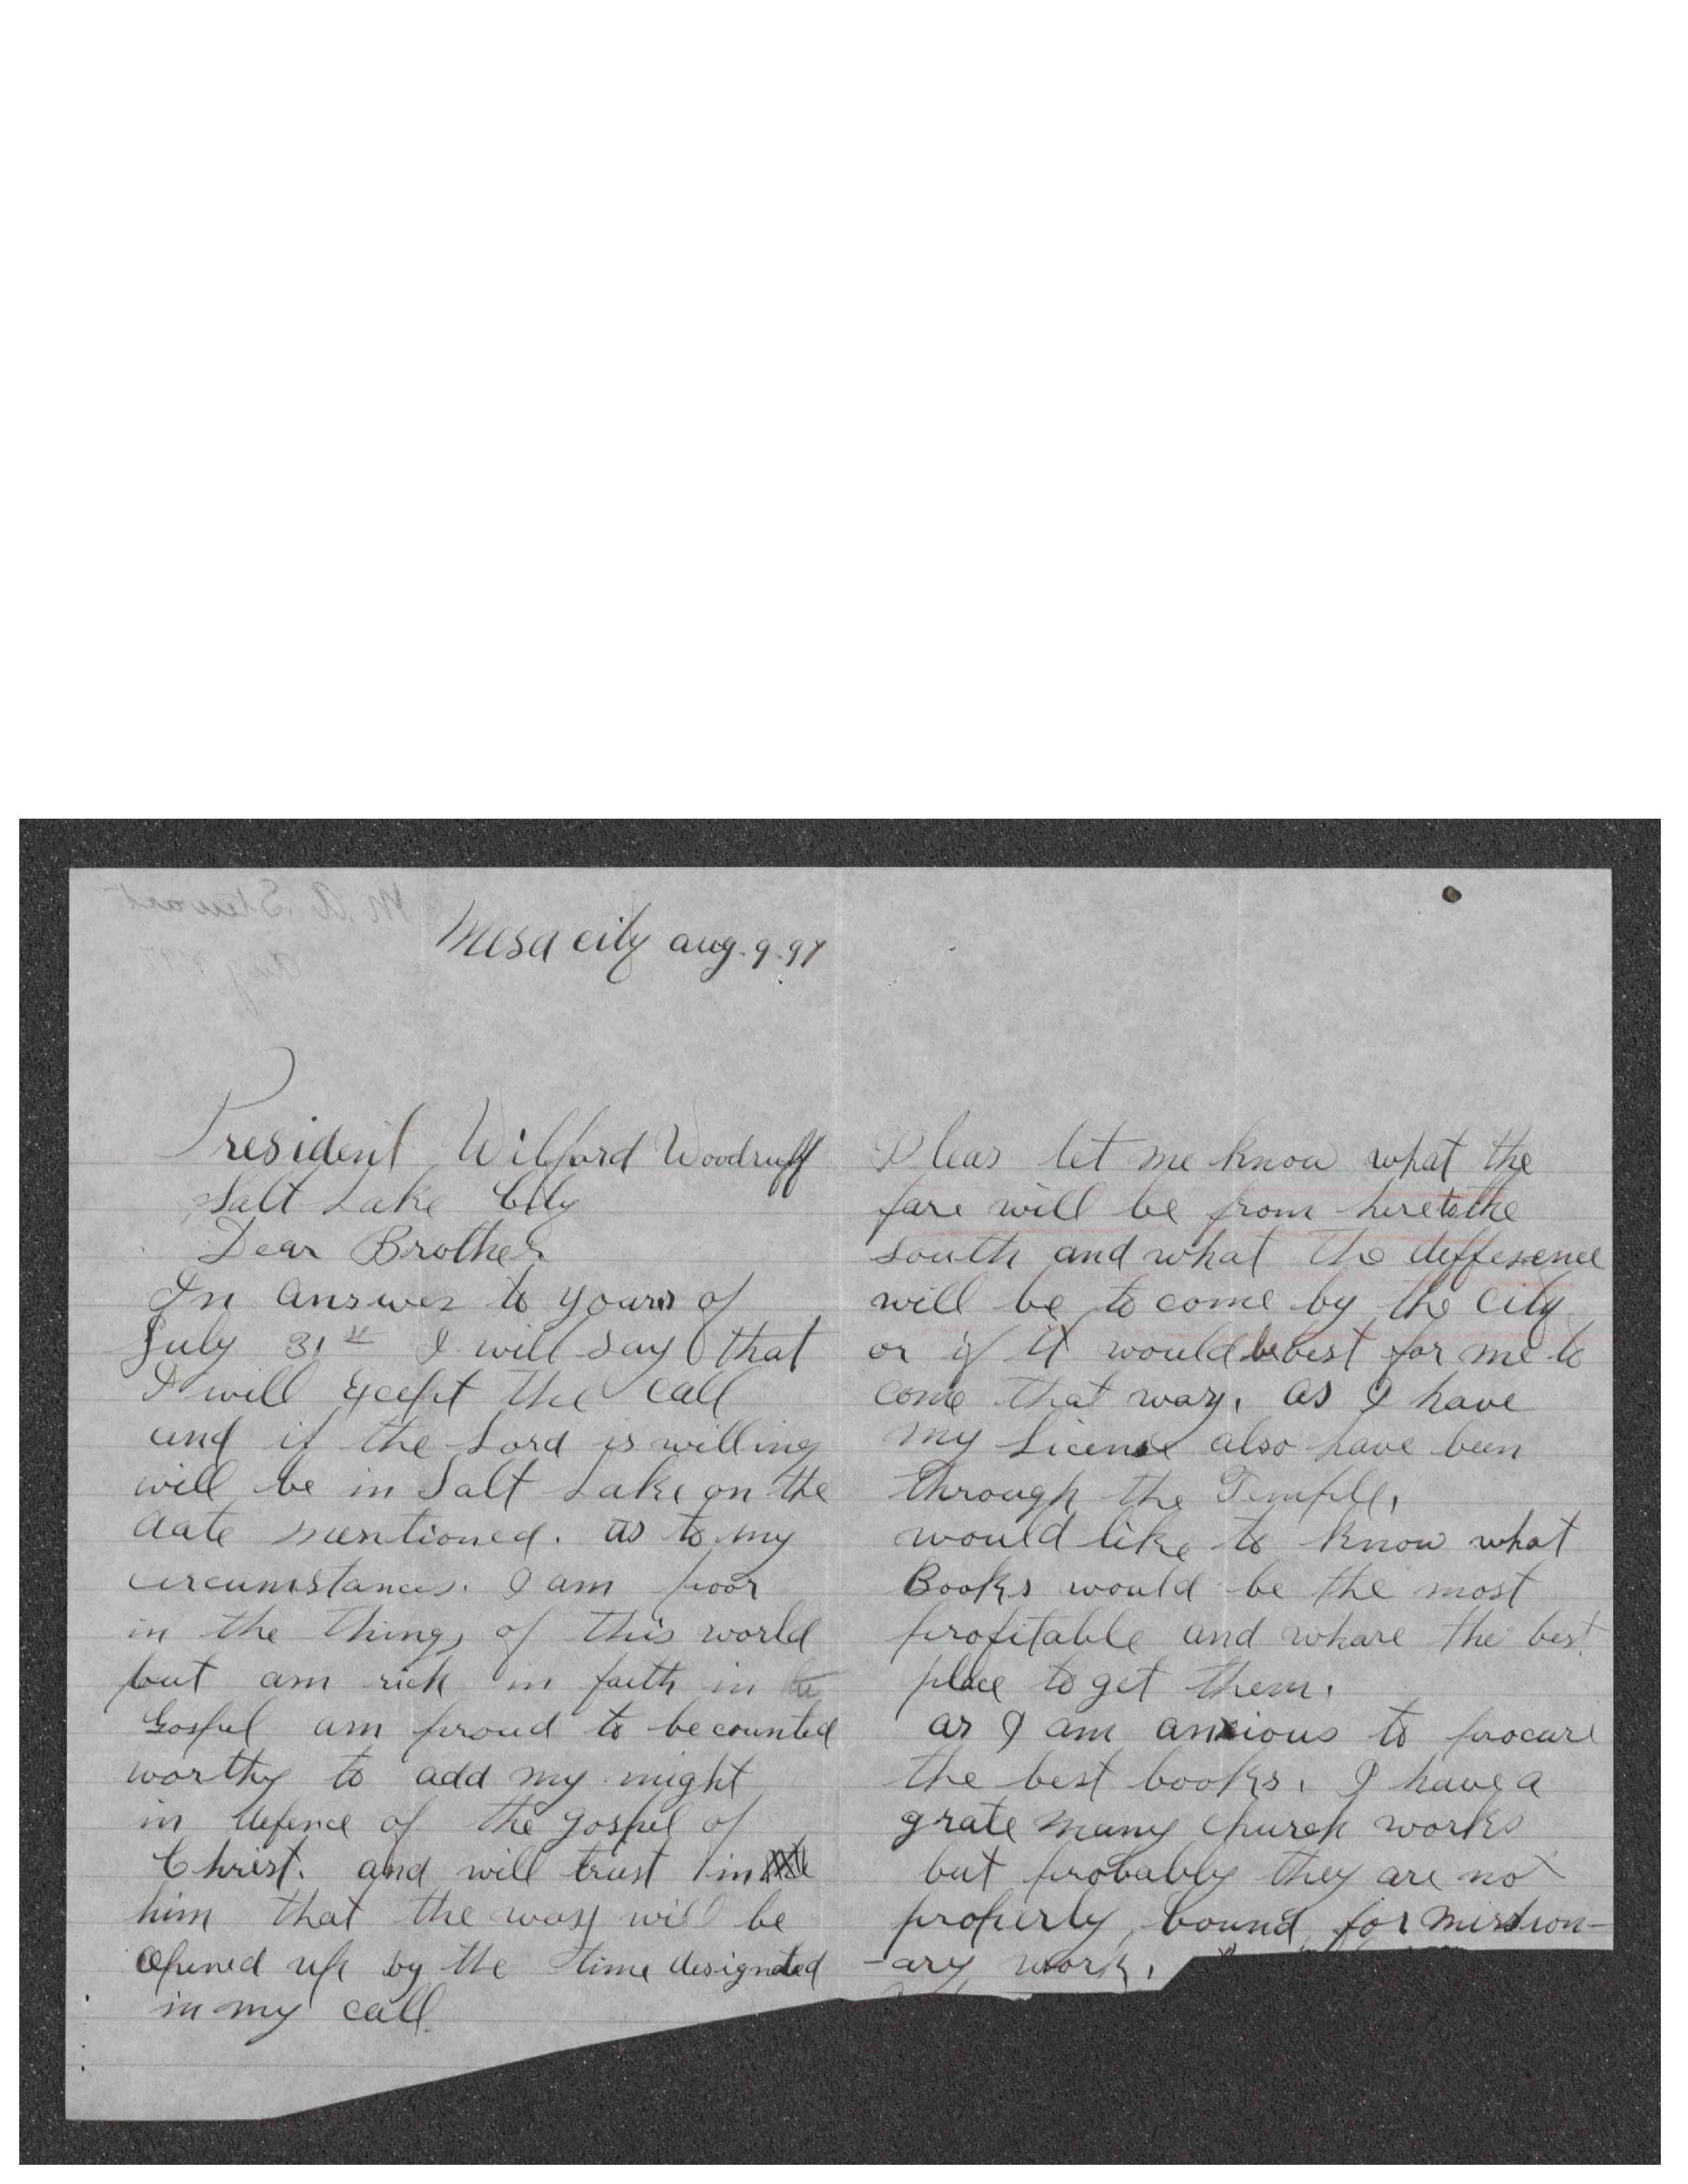 M. A. Stewart
Aug 9 '97
Mesa city aug. 9. 97
President Wilford Woodruff
Salt Lake City
Dear Brother
In answer to yours of
July 31st I will say that
I will except the call
and if the Lord is willing
will be in Salt Lake on the
date mentioned. as to my
circumstances. I am poor
in the things of this world
but am rich in faith in the
Gospel am proud to be counted
worthy to add my might
in defence of the gospel of
Christ. and will trust in
him that the way will be
opened up by the time designated
in my call
Pleas let me know what the
fare will be from here to the
south and what the defference
will be to come by the city
or if it would be best for me to
come that way. as I have
my License also have been
through the Temple.
would like to know what
Books would be the most
profitable and whare the best
place to get them.
as I am anxious to procure
the best books. I have a
grate many church works
but probably they are not
properly bound for mission-
-ary work.